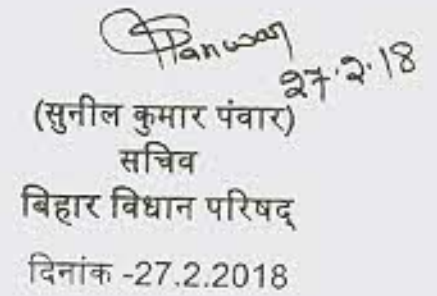 Panwar
27.2.18
(सुनील कुमार पंवार)
सचिव
बिहार विधान परिषद्
दिनांक -27.2.2018